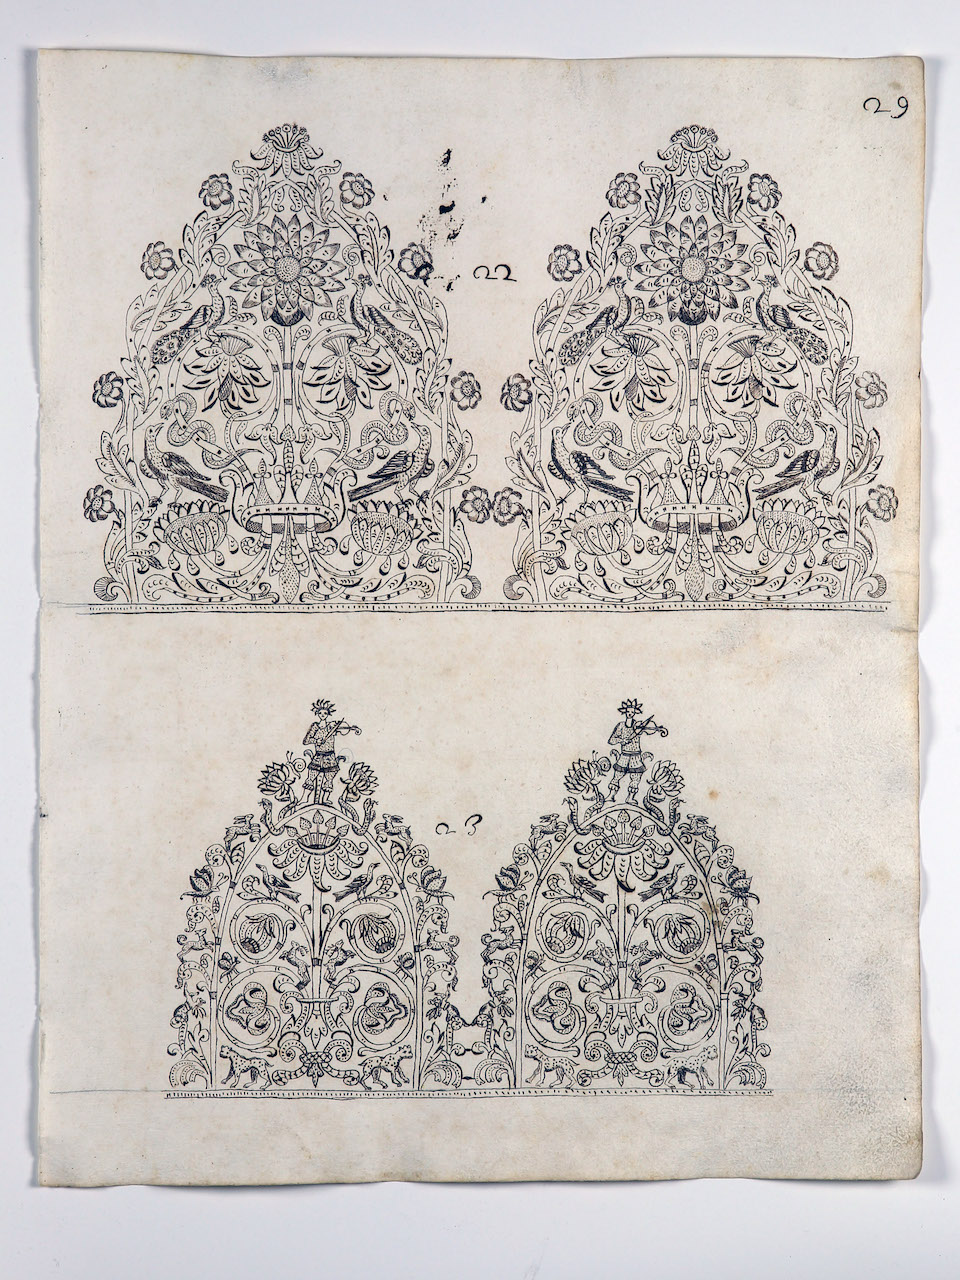 29
22
23